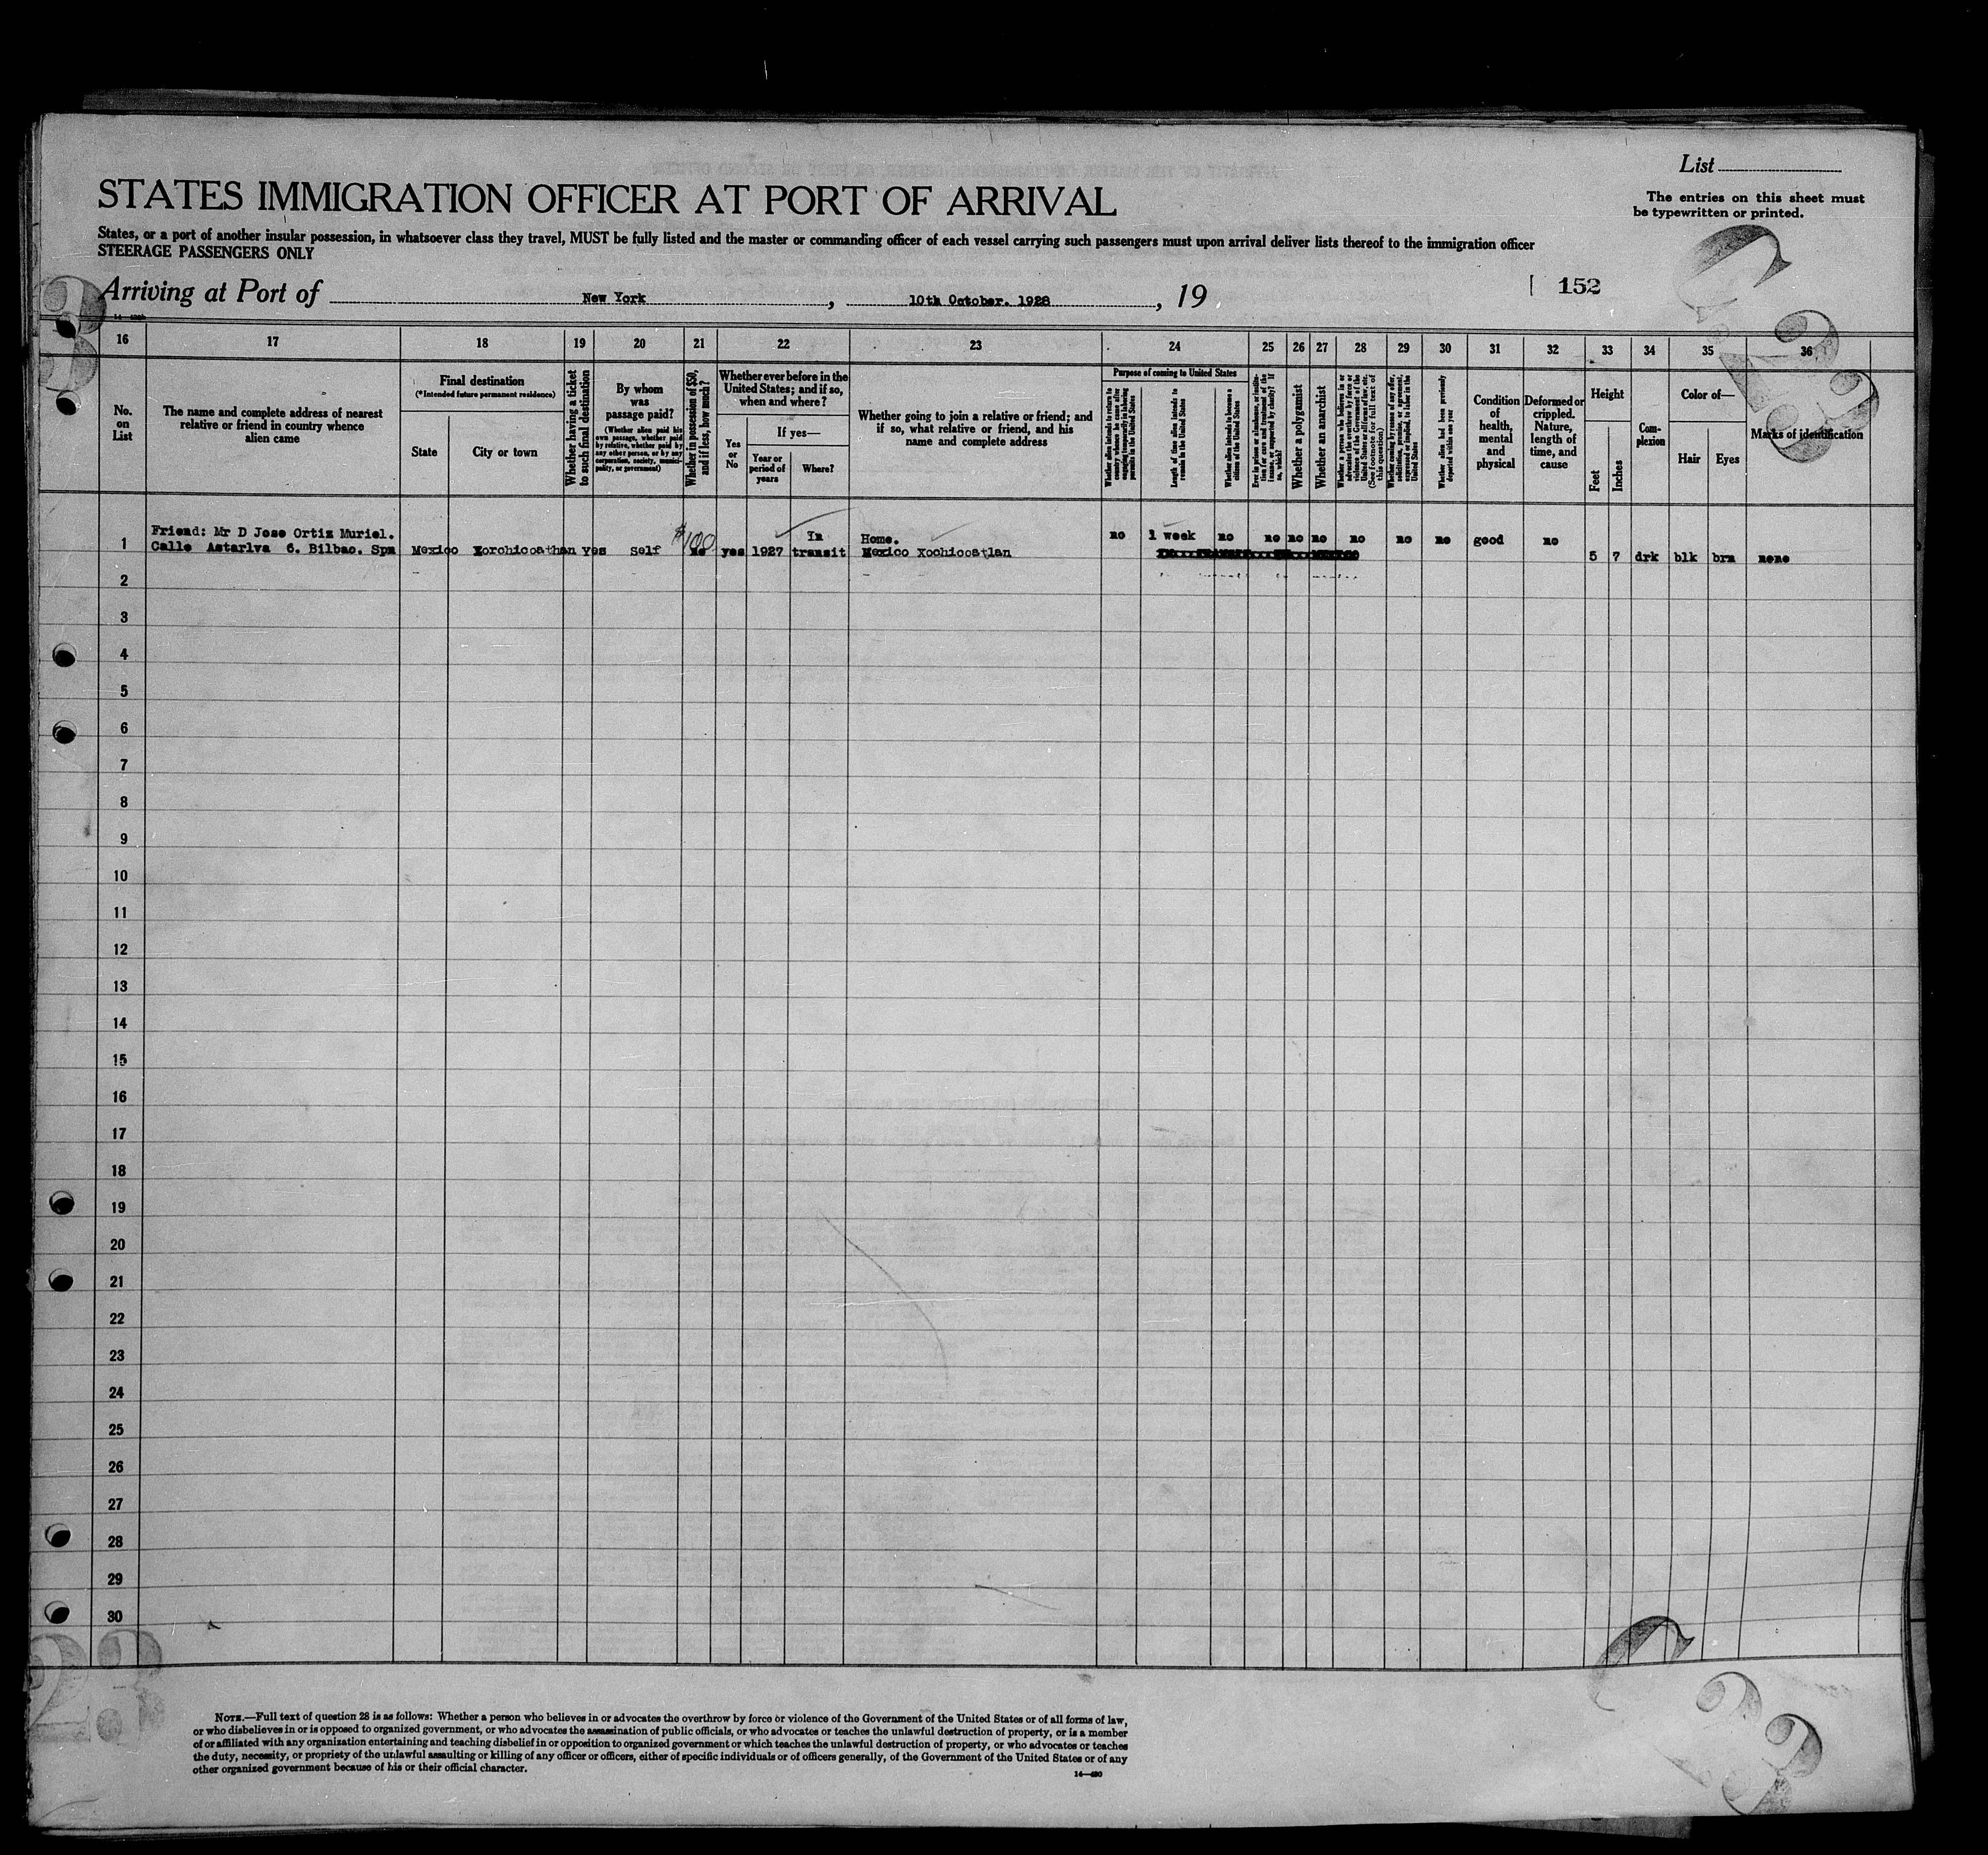 List
STATES IMMIGRATION OFFICER AT PORT OF ARRIVAL
The entries on this sheet must
be typewritten or printed.
States, or a port of another insular possession, in whatsoever class they travel, MUST be fully listed and the master or commanding officer of each vessel carrying such passengers must upon arrival deliver lists thereof to the immigration officer
STEERAGE PASSENGERS ONLY
Arriving at Port of New York, 10th October. 1928, 19
152
16 17 18 19 20 21 22 23 24 25 26 27 28 29 30 31 32 33 34 35 36
No.
on
List
The name and complete address of nearest
relative or friend in country whence
alien came
Final destination
(*Intended future permanent residence)
State
City or town
Whether having a ticket
to such final destination
By whom
was
passage paid?
(Whether alien paid his
own passage, whether paid
by relative, whether paid by
any other person, or by any
corporation, society, munici-
pality, or government)
Whether in possession of $50,
and if less, how much?
Whether ever before in the
United States; and if so,
when and where?
Yes
or
No
If yes—
Year or
period of
years
Where?
Whether going to join a relative or friend; and
if so, what relative or friend, and his
name and complete address
Purpose of coming to United States
Whether alien intends to return to
country whence he came after
engaging temporarily in laboring
pursuits in the United States
Length of time alien intends to
remain in the United States
Whether alien intends to become a
citizen of the United States
Ever in prison or almshouse, or institu-
tion for care and treatment of the
insane, or supported by charity? If
so, which?
Whether a polygamist
Whether an anarchist
Whether a person who believes in or
advocates the overthrow by force or
violence of the Government of the
United States or all forms of law, etc.
(See footnote for full text of
this question)
Whether coming by reason of any offer,
solicitation, promise, or agreement,
expressed or implied, to labor in the
United States
Whether alien had been previously
deported within one year
Condition
of
health,
mental
and
physical
Deformed or
crippled.
Nature,
length of
time, and
cause
Height
Feet
Inches
Com-
plexion
Color of—
Hair
Eyes
Marks of identification
1 Friend: Mr D Jose Ortiz Muriel.
Calle Astarlva 6. Bilbao. Spa Mexico Xorchicoathan yes self $100 yes 1927 In
transit Home.
Mexico Xochicoatlan no 1 week no no no no no no no good no 5 7 drk blk brn none
2
3
4
5
6
7
8
9
10
11
12
13
14
15
16
17
18
19
20
21
22
23
24
25
26
27
28
29
30
NOTE.—Full text of question 28 is as follows: Whether a person who believes in or advocates the overthrow by force or violence of the Government of the United States or of all forms of law,
or who disbelieves in or is opposed to organized government, or who advocates the assassination of public officials, or who advocates or teaches the unlawful destruction of property, or is a member
of or affiliated with any organization entertaining and teaching disbelief in or opposition to organized government or which teaches the unlawful destruction of property, or who advocates or teaches
the duty, necessity, or propriety of the unlawful assaulting or killing of any officer or officers, either of specific individuals or of officers generally, of the Government of the United States or of any
other organized government because of his or their official character.
14—480